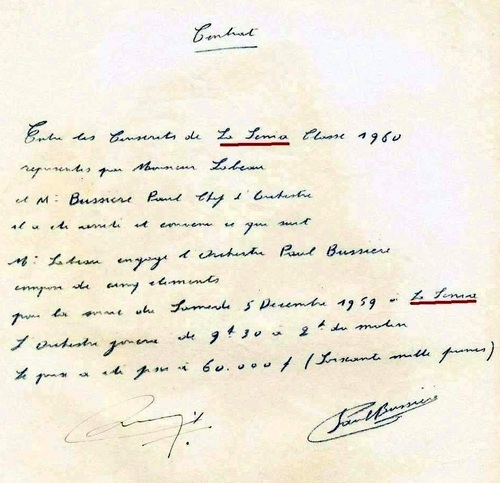 Contrat
Entre les Conscrits de La Senia Classe 1960
représentés par Monsieur Lebeau
et Mr Bussiere Paul Chef d'Orchestre
il a été arrêté et convenu ce que suit
Mr Lebeau engage l'Orchestre Paul Bussiere
composé de cinq éléments
pour la soirée du Samedi 5 Decembre 1959 à La Senia
L'Orchestre jouera de 9h30 à 2h du matin
Le prix a été fixé à 60.000 f (Soixante mille francs)
Paul Bussiere